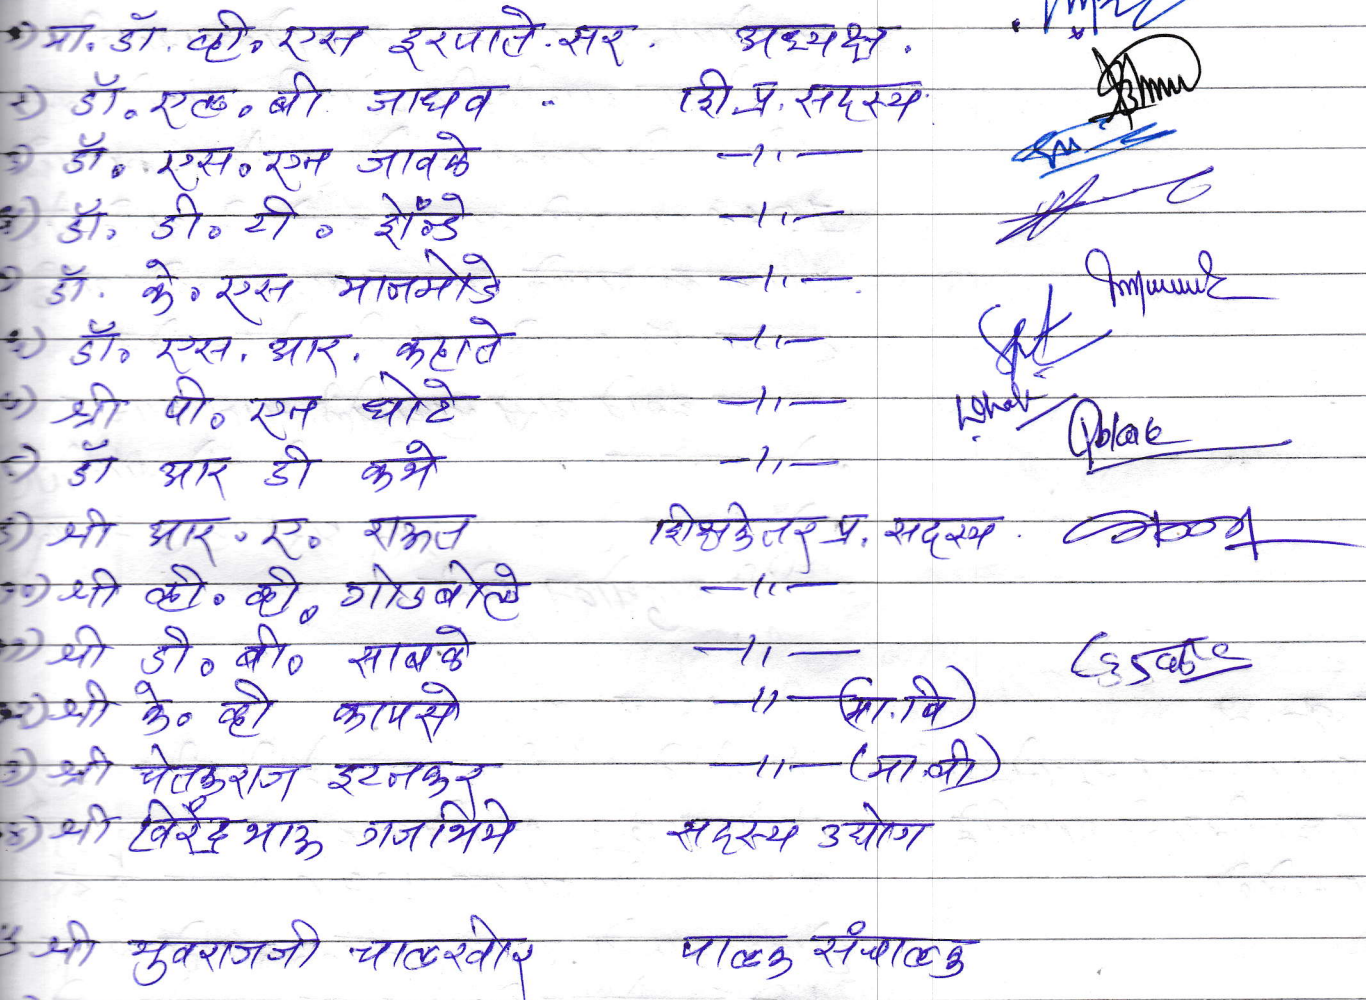 १) प्रा. डॉ. व्ही. एस इरपाते. सर. अध्यक्ष.
२) डॉ. एल. बी जाधव शि प्र. सदस्य.
३) डॉ. एस. एन जावके —〃—
४) डॉ. डी. टी. शेंन्डे —〃—
५) डॉ. के. एस माजमोडे —〃—
६) डॉ. एस. आर. कहाते —〃—
७) श्री पी. एन घोटे —〃—
८) डॉ आर डी कभे —〃—
९) श्री आर. ए. राऊत शिक्षकेतर प्र. सदस्य.
१०) श्री व्ही. व्ही. गोडबोले —〃—
११) श्री डी. बी. साबळे —〃—
१२) श्री के. व्ही कापसे —〃— (मा. वि)
१३) श्री इटनकर —〃— (मा. वी)
१४) श्री विरेंद्र भाऊ गजभिये सदस्य उद्योग
श्री युवराजजी चालखोर पालक संचालक